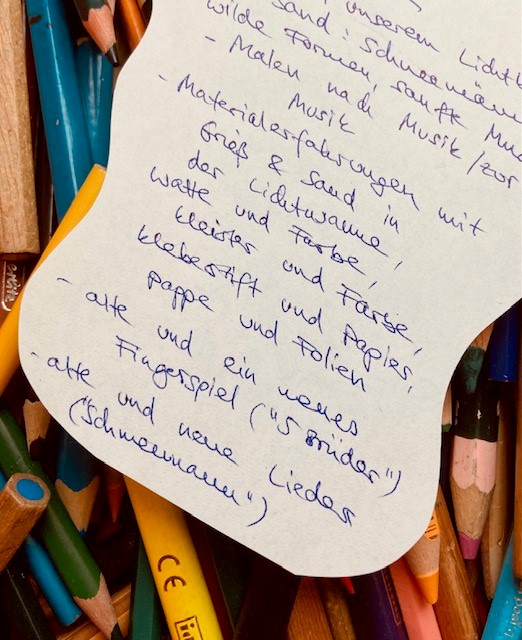 unserem Licht
Sand: Schneemänn
wilde Formen, sanfte Mus
- Malen nach Musik / zur
Musik
- Materialerfahrungen mit
Grieß & Sand in
der Lichtwanne,
Watte und Farbe,
Kleister und Farbe,
Klebestift und Papier,
Pappe und Folien
- alte und ein neues
Fingerspiel ("5 Brüder")
- alte und neue Lieder
("Schneemann")
CE